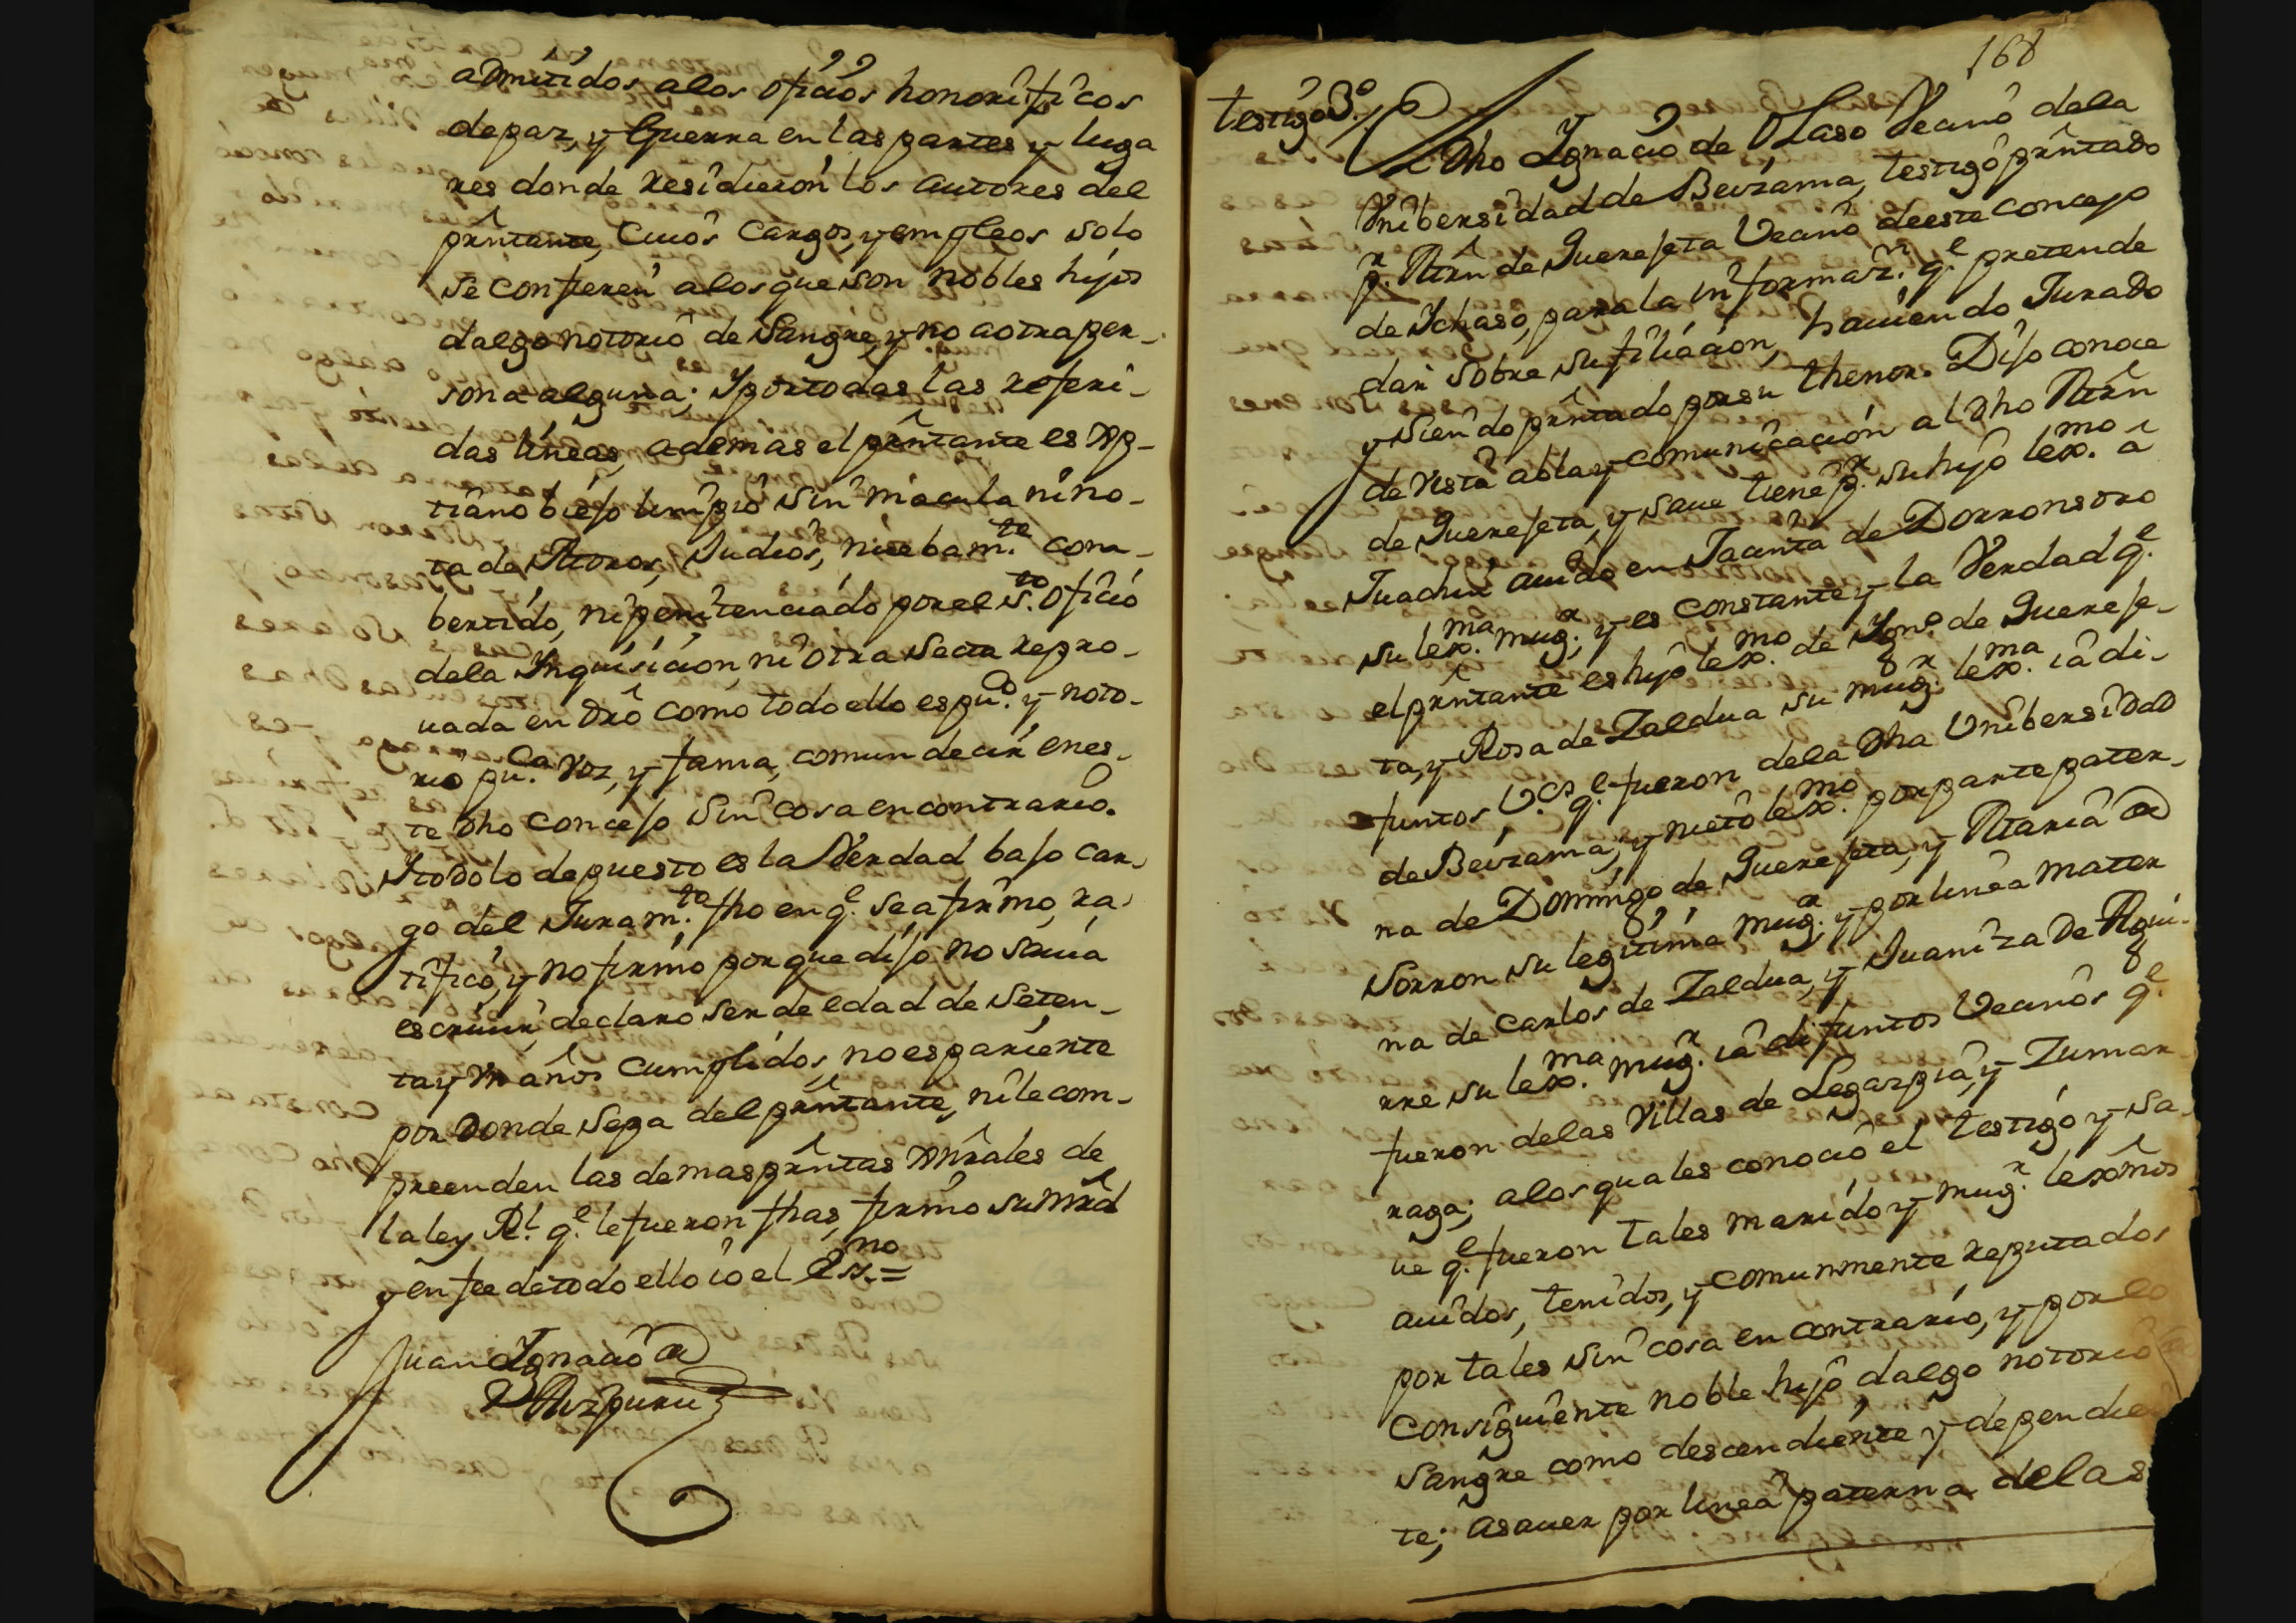 admitidos alos oficios honorificos
depaz, y Guerra en las partes y luga
res donde residieron los autores del
prñtante, Cuios Cargos, y empleos solo
se confieren alos que son nobles hijos
dalgo notorio de Sangre, y no aotra per-
sona alguna; Yportodas las referi-
das lineas, ademas el prñtante es xp-
tiano biejo limpio sin macula nino-
ta de Moros, Judios, nuebam.te com-
bertido, ni penitenciado por el S.to oficio
dela Ynquisicion, ni otra Secta repro-
uada en dro como todo ello es pu.co y noto-
rio pu.ca voz, y fama, comun decir enes-
te dho concejo sin cosa encontrario.
Ytodolo depuesto es la Verdad bajo car-
go del Juram.to fho en q.e se afirmo, ra-
tifico, y no firmo porque dijo no sauia
escriuir, declaro ser de edad de Seten-
tay un años cumplidos, no es pariente
por donde sepa del prñtante, nile com-
preenden las demas prñtas Gñrales de
la ley Rl. q.e le fueron fhas, firmo su mrd
y en fee detodo ello io el Ess.no =
Juan Ygnacio de
Aizpuru
168
testigo 3.o
El Dho Ygnacio de Olaso Vecino dela
Vnibersidad de Beizama, testigo prñtado
p.r Mrn de Querejeta Vecino deeste concejo
de Ychaso, para la informaz.n q.e pretende
dar sobre su filiacion, hauiendo Jurado
y siendo prñtado por su thenor. Dijo conoce
de vista abla y comunicacion al dho Mrn
de Querejeta, y saue tiene p.r su hijo lex.mo â
Juachin auido en Jacinta de Dorronsoro
su lex.ma mug.r, y es constante y la Verdad q.e
el prñtante es hijo lex.mo de Ygn.o de Quereje-
ta, y Rosa de Zaldua su mug.r lex.ma ia di-
funtos, V.os q.e fueron dela dha Vnibersidad
de Beizama, y nieto lex.mo por parte pater-
na de Domingo de Querejeta, y Maria de
Sorron su legitima mug.r, y por linea mater
na de Carlos de Zaldua, y Juaniza De Agui-
rre su lex.ma mug.r ia difuntos Vecinos q.e
fueron delas Villas de Legazpia, y Zumar-
raga; alos quales conocio el testigo y sa-
ue q.e fueron tales marido y mug.r lexmos
auidos, tenidos, y comunmente reputados
por tales sin cosa en contrario, y por lo
Consiguiente noble hijo, dalgo notorio de
Sangre como descendiente y dependien
te; asauer por linea paterna delas